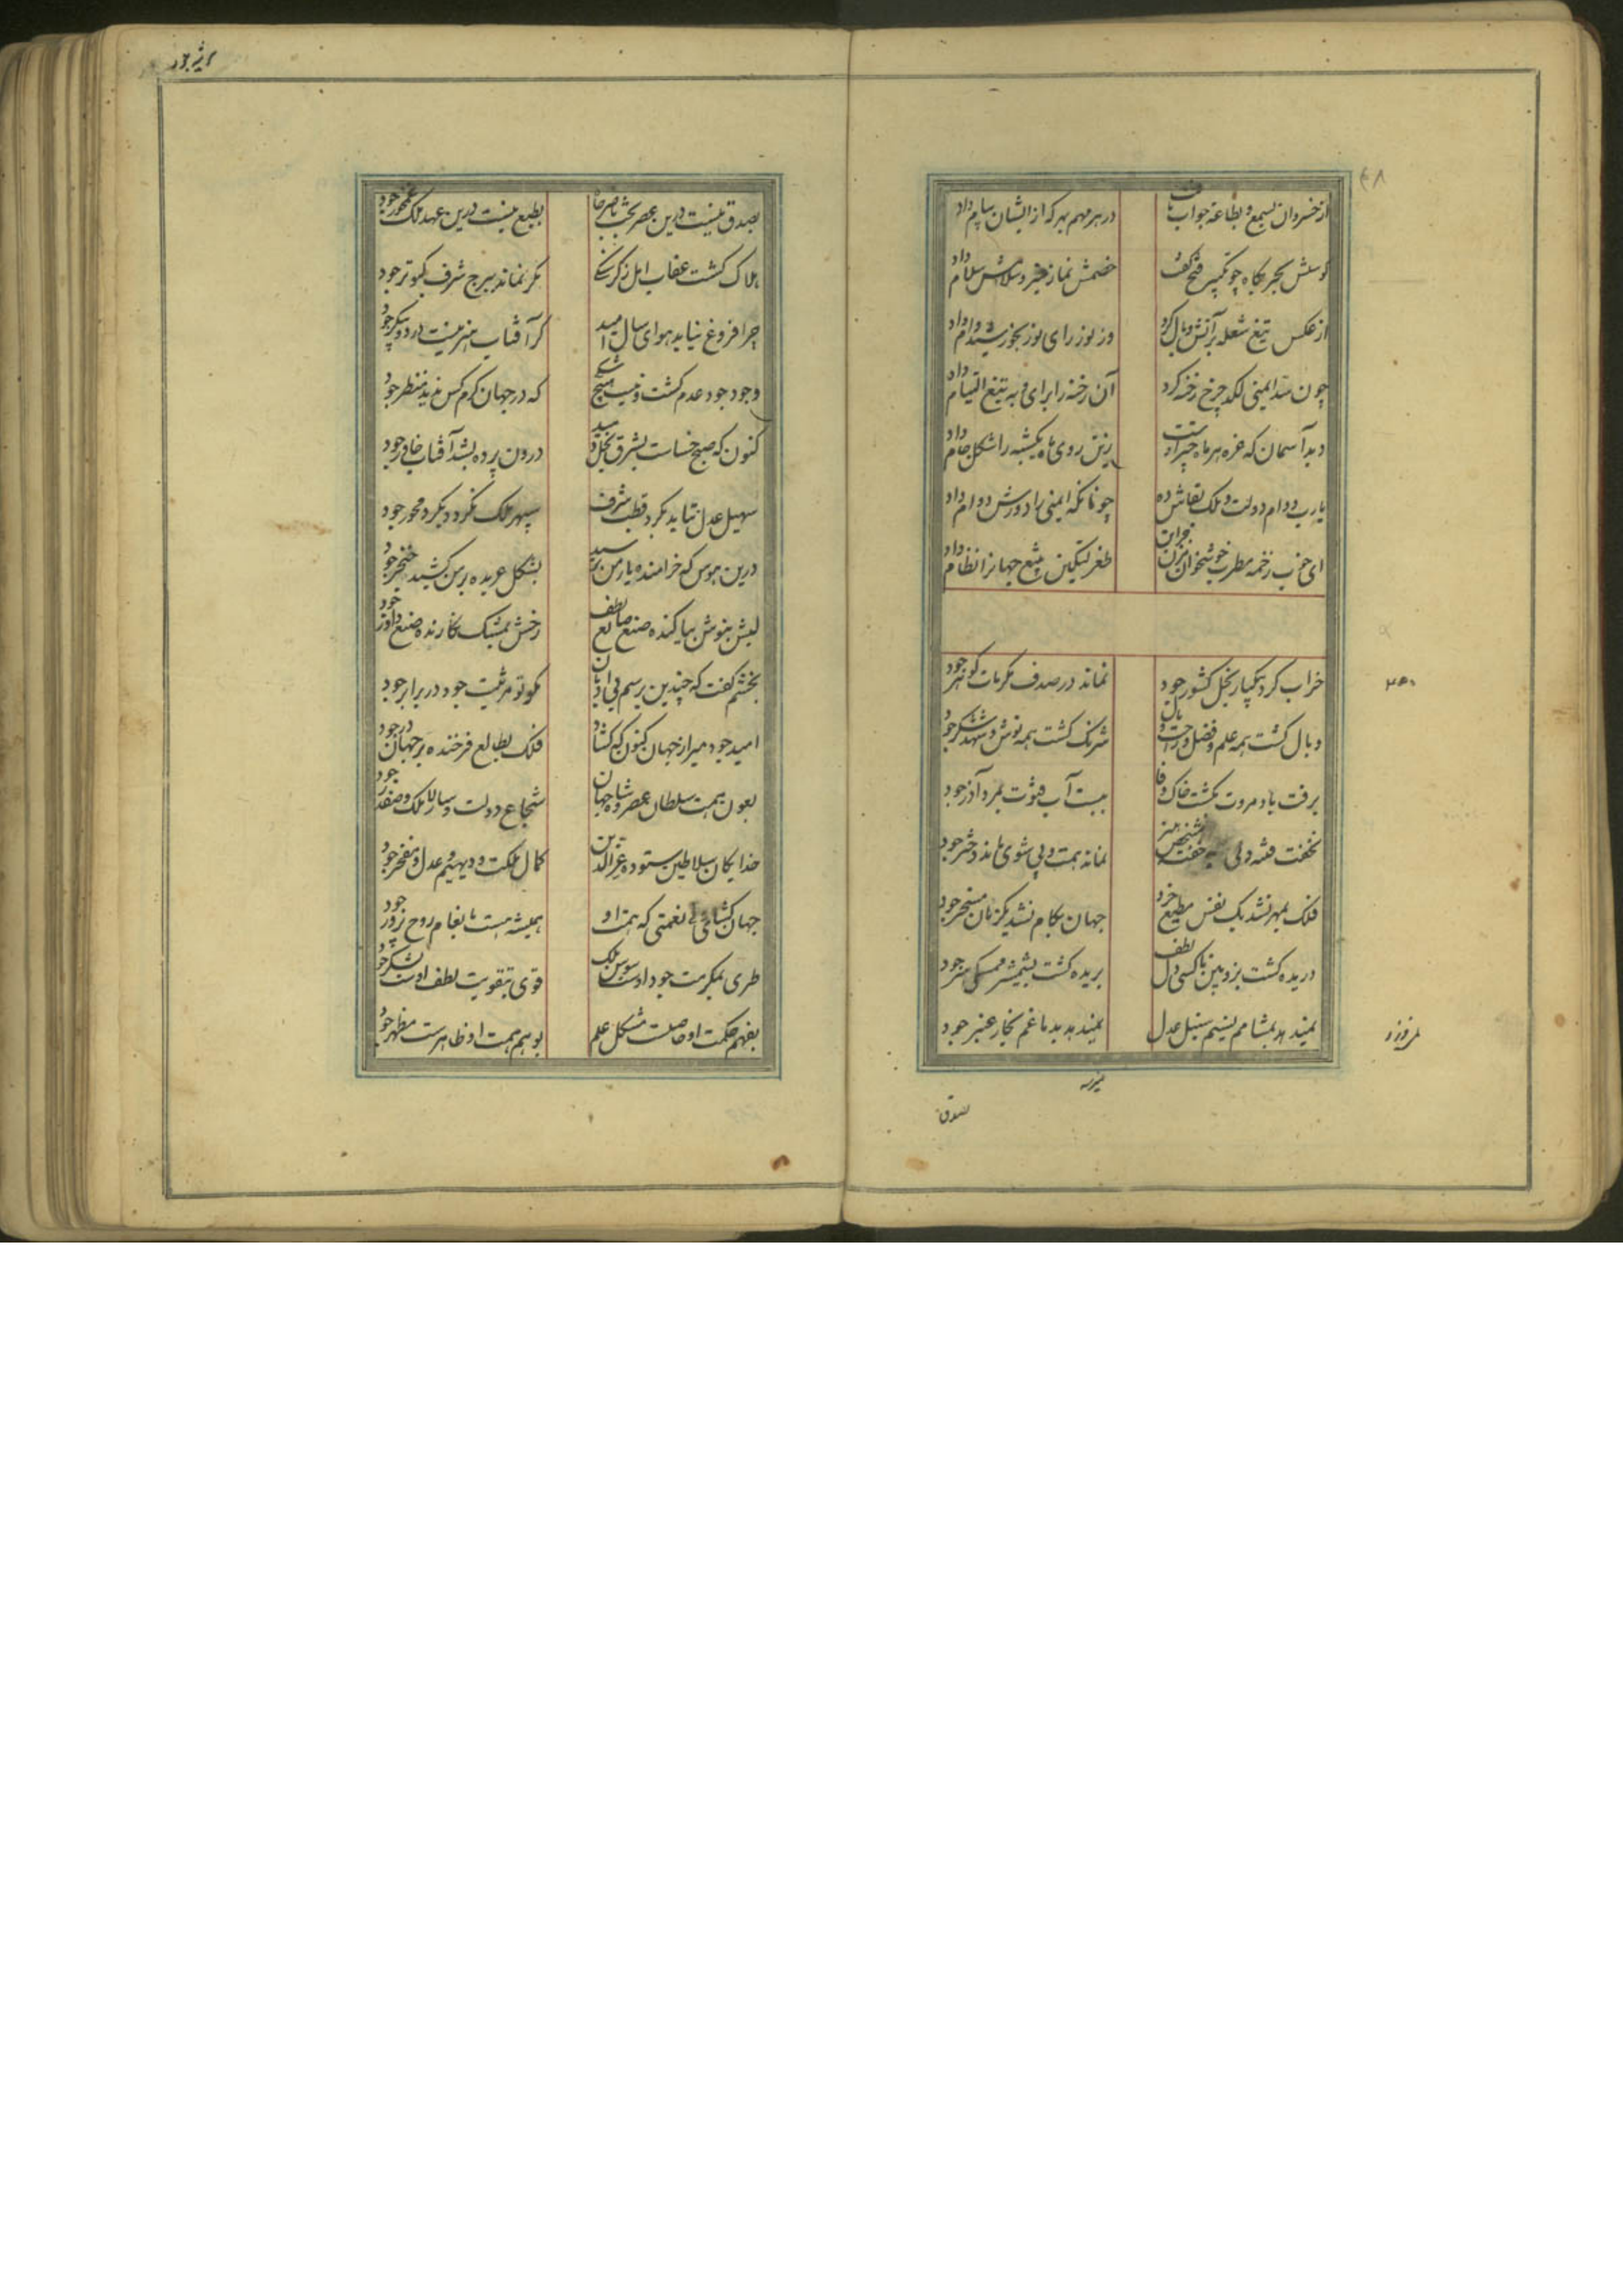 ۴۸
از خسروان بسمع و بطاعة جواب یافت
در هر مهم بهر که از ایشان پیام داد
کوسش بحربگاه چو تکبیر فتح گفت
خصمش نماز خیر و سلامش سلام داد
از عکس تیغ شعله بر آتش وبال کرد
وز نور رای نور بخورشید وام داد
چون سد ایمنی لکد چرخ رخنه کرد
آن رخنه را برای و به تیغ التیام داد
دید آسمان که غره هر ماه چیر اوست
زینش روی ماه یکشبه را شکل جام داد
یارب دوام دولت و ملک بقاش ده
چونانکه ایمنی را دورش دوام داد
ای خوب زخمه مطرب خوشخوان بزن بخوان
طغرلتکین بتیغ جهانرا نظام داد
خراب کرد بیکبار بخل کشور جود
نماند در صدف مکرمات گوهر جود
وبال گشت همه علم و فضل و راحت و بال
شرنگ گشت همه نوش و شهد و شکر جود
برفت باد مروت بگشت خاک وفا
ببست آب فتوت بمرد آذر جود
نخفت فتنه ولی خفت شخص هنر
نماند همت و بی شوی ماند دختر جود
فلک بمهر نشد یک نفس مطیع خرد
جهان بکام نشد یکزمان مسخر جود
دریده گشت بزوبین ناکسی دل لطف
بریده گشت بشمشیر ممسکی سر جود
نمیدهد بمشامم نسیم سنبل عدل
نمیدهد بدماغم بخار عنبر جود
بصدق
بصدق نیست درین عصر بخت ناصر جاه
بطبع نیست درین عهد ملک غمخور جود
هلاک گشت عقاب امل ز گرسنگی
مگر نماند ببرج شرف کبوتر جود
چرا فروغ نیابد هوای سال امید
گر آفتاب هنر نیست در دو پیکر جود
وجود جود عدم گشت و نیست هیچ شکی
که در جهان کرم کس ندید منظر جود
کنون که صبح خساست بشرق بخل دمید
درون پرده بشد آفتاب خاور جود
سهیل عدل نتابد بگرد قطب شرف
سپهر ملک نگردد بگرد محور جود
درین هوس که خرامنده یار من برسید
بشکل عربده بر من کشید خنجر جود
لبش بنوش بیاکنده صنع صانع لطف
رخش بمشک نگارنده صنع داور جود
بخشم گفت که چندین برسم بی ادبان
مگو تو مرثیت جود در برابر جود
امید جود مبر از جهان کنون که گشاد
فلک بطالع فرخنده بر جهان در جود
بعون همت سلطان عصر و شاه جهان
شجاع دولت و سالار ملک و صفدر جود
خدایگان سلاطین ستوده عزالدین
کمال ملکت و دیهیم عدل و مفخر جود
جهان گشای ولی نعمتی که همت او
همیشه هست بانعام روح پرور جود
طری بمکرمت جود اوست سوسن ملک
قوی بتقویت لطف اوست لشکر جود
بفهم حکمت او حاصلست مشکل علم
بوهم همت او ظاهرست مظهر جود